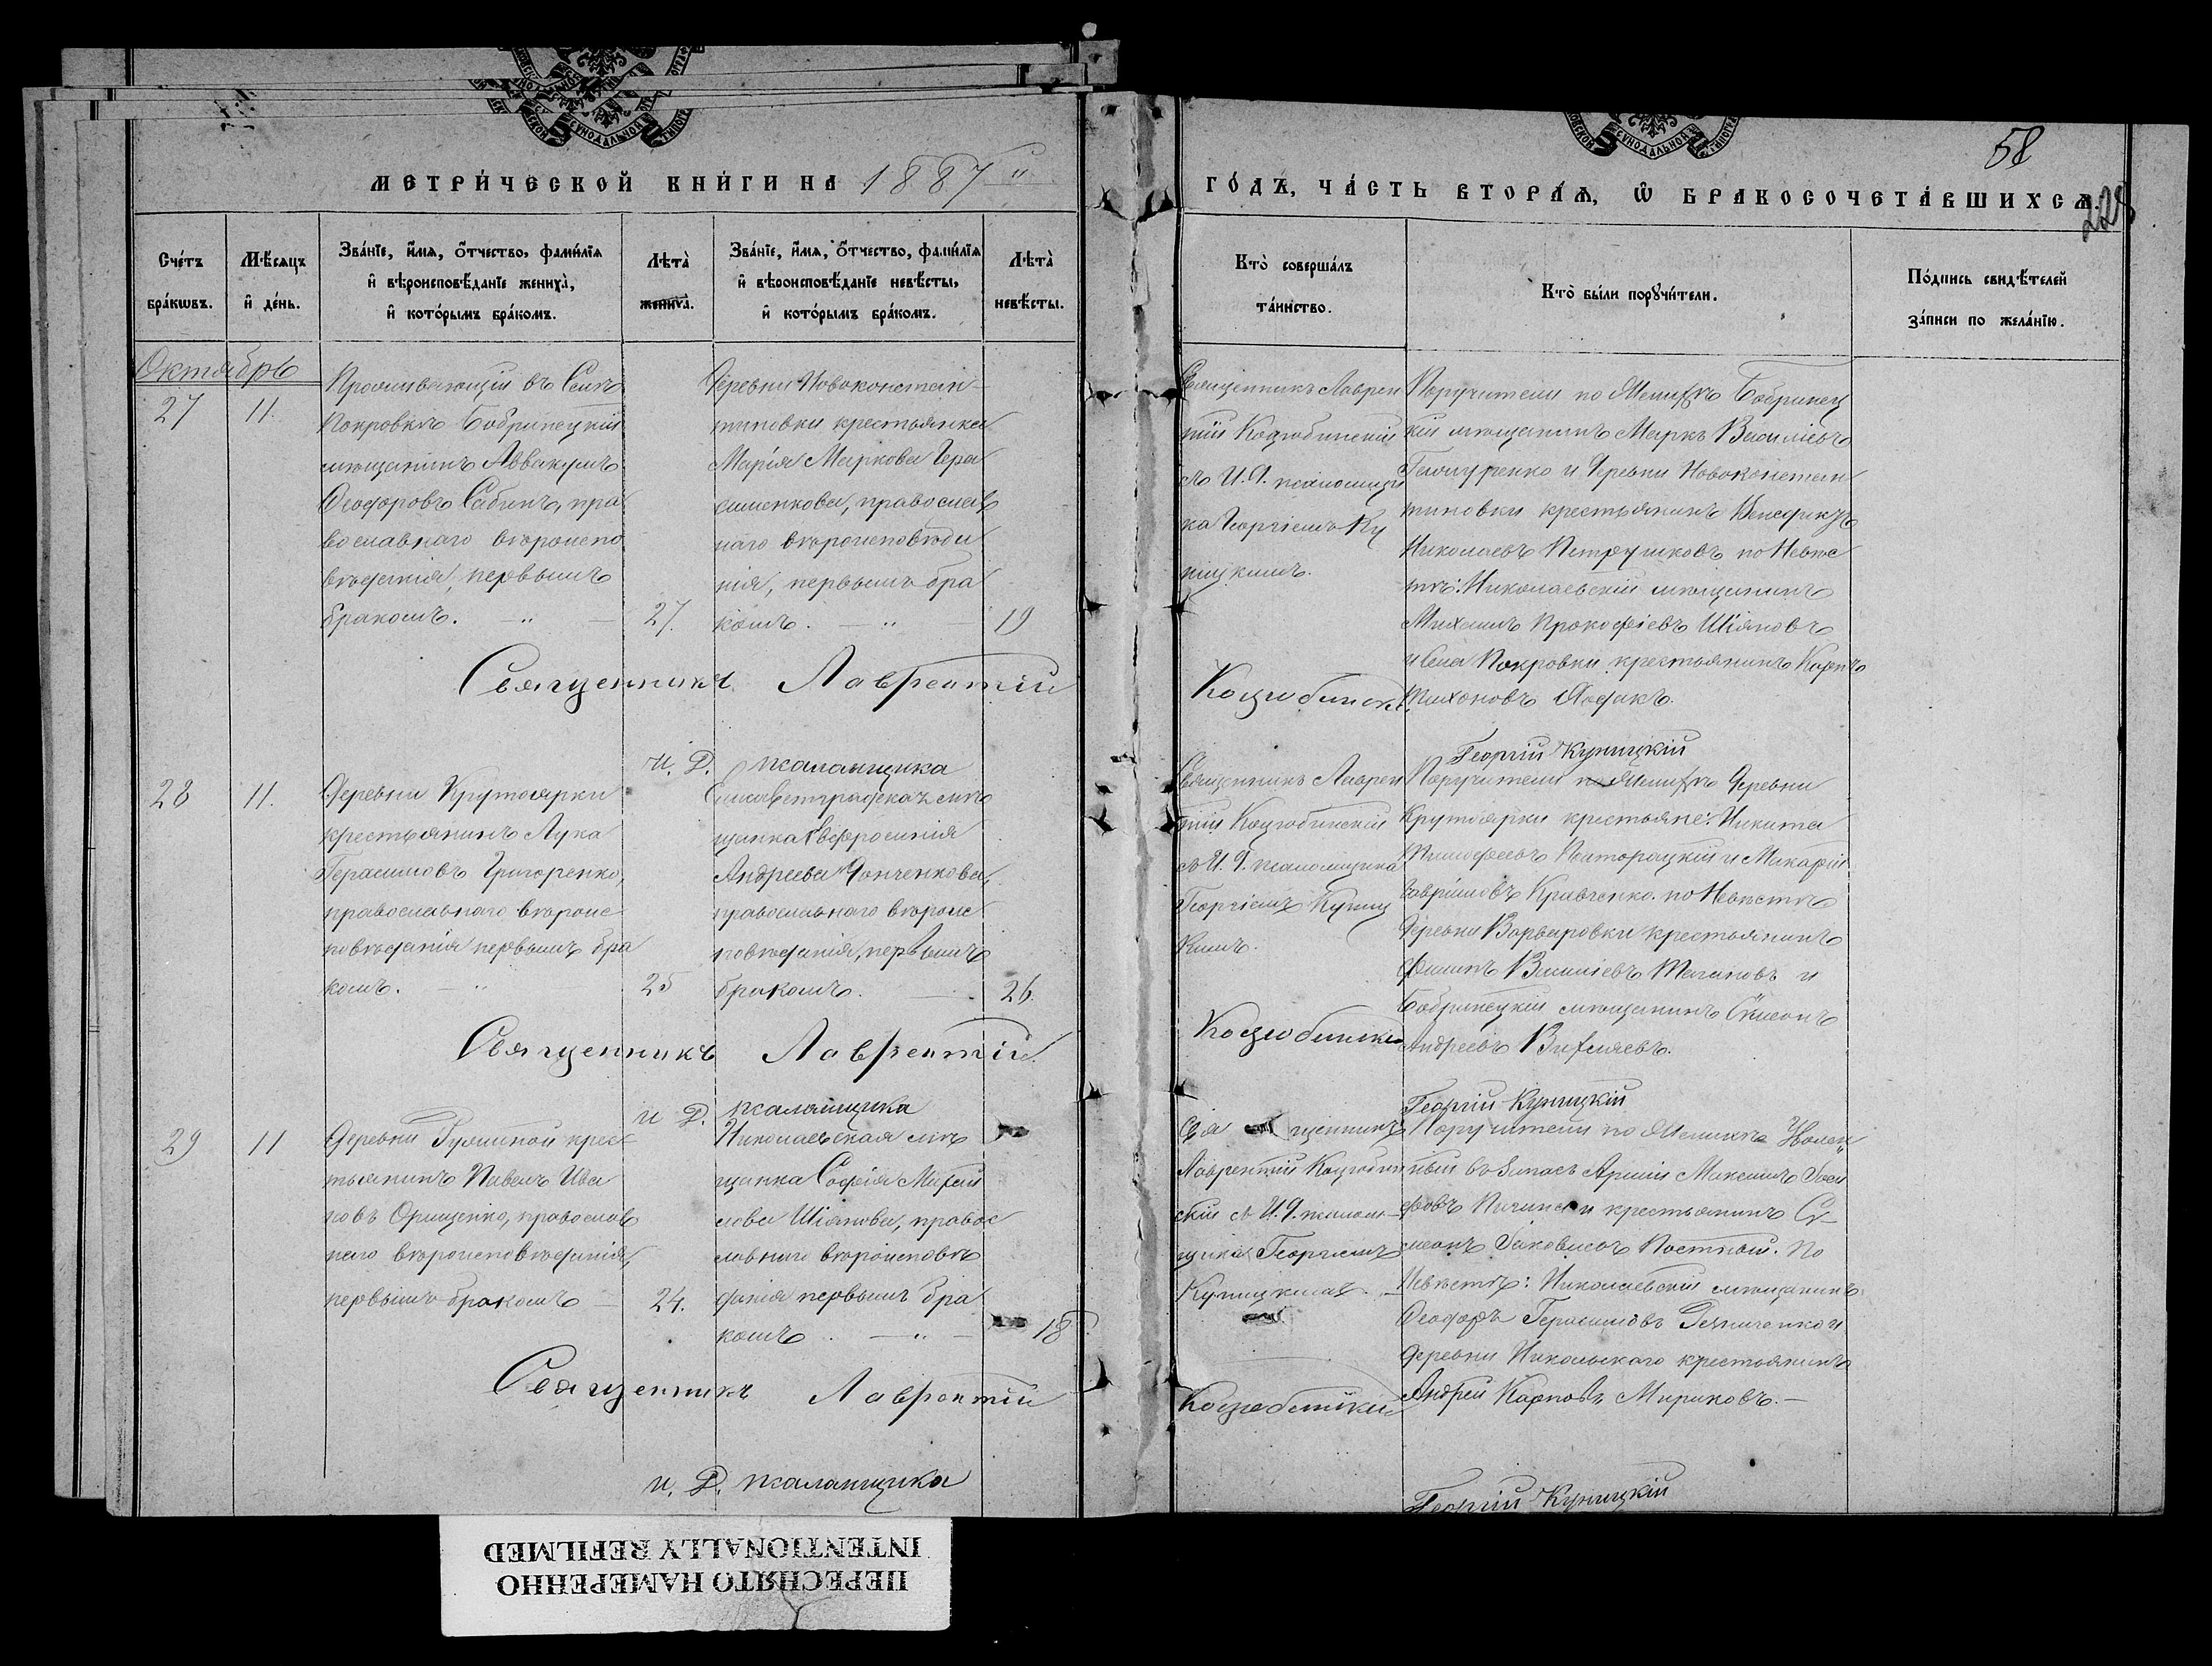 МЕТРИЧЕСКОЙ КНИГИ НА 1887
ГОДЪ, ЧАСТЬ ВТОРАЯ, Ѡ БРАКОСОЧЕТАВШИХСЯ.
58
228
Счетъ браковъ.
Мѣсяцъ и день.
Званіе, имя, отчество, фамилія
и вѣроисповѣданіе жениха,
и которымъ бракомъ.
Лѣта
жениха.
Званіе, имя, отчество, фамилія
и вѣроисповѣданіе невѣсты,
и которымъ бракомъ.
Лѣта
невѣсты.
Кто совершалъ
таинство.
Кто были поручители.
Подпись свидѣтелей
записи по желанію.
Октябрь
27
11.
Проживающій въ Селѣ
Покровкѣ Бобринецкій
мѣщанинъ Аввакумъ
Ѳеодоровъ Сабинъ, пра
вославнаго вѣроиспо
вѣданія, первымъ
бракомъ.
27.
Деревни Новоконстан-
тиновки крестьянка
Марія Маркова Гера
сименкова, православ
наго вѣроисповѣда
нія, первымъ бра
комъ.
19
Священникъ Лаврен
тій Коцюбинскій
съ И. Д. псаломщи
ка Георгіемъ Ку
ницкимъ.
Поручители по Женихѣ Бобринец
кій мѣщанинъ Маркъ Василіевъ
и Деревни Новоконстан
тиновки крестьянинъ
Николаевъ Петрушковъ по Невѣс
тѣ: Николаевскій мѣщанинъ
Михаилъ Прокофіевъ Шіяновъ
и Села Покровки крестьянинъ Карпъ
Тихоновъ
Священникъ Лаврентій Коцюбинскій
И. Д. псаломщика Георгій Куницкій
28
11.
Деревни Крутоярки
крестьянинъ Лука
Герасимовъ Григоренко,
православнаго вѣроис
повѣданія первымъ бра
комъ.
25
Елисаветградская мѣ
щанка Евфросинія
Андреева Донченкова,
православнаго вѣроис
повѣданія, первымъ
бракомъ.
26.
Священникъ Лаврен
тій Коцюбинскій
съ И. Д. псаломщика
Георгіемъ Куниц
кимъ.
Поручители по Женихѣ Деревни
Крутоярки крестьяне: Никита
Тимофеевъ Пиворацкій и Макарій
Гавріиловъ Кравченко. по Невѣстѣ
Деревни Варваровки крестьянинъ
Василіевъ и
Бобринецкій мѣщанинъ Симеонъ
Андреевъ
Священникъ Лаврентій Коцюбинскій
И. Д. псаломщика Георгій Куницкій
29
11
Деревни Гуляиной крес
тьянинъ Павелъ Ива
новъ Орищенко, православ
наго вѣроисповѣданія,
первымъ бракомъ
24.
Николаевская мѣ
щанка Софія Михаи
лова Шіянова, правос
лавнаго вѣроисповѣ
данія первымъ бра
комъ
18
Священникъ
Лаврентій Коцюбин
скій съ И. Д. псалом-
щика Георгіемъ
Куницкимъ.
Поручители по Женихѣ Уволен
ный въ Запасъ Арміи Максимъ Іоси
фовъ и крестьянинъ Си
меонъ Іаковлевъ Постный. По
Невѣстѣ: Николаевскій мѣщанинъ
Ѳеодоръ Герасимовъ и
деревни Никольскаго крестьянинъ
Андрей Карповъ Мириковъ.
Священникъ Лаврентій Коцюбинскій
И. Д. псаломщика Георгій Куницкій
ПЕРЕСНЯТО НАМЕРЕННО
INTENTIONALLY REFILMED